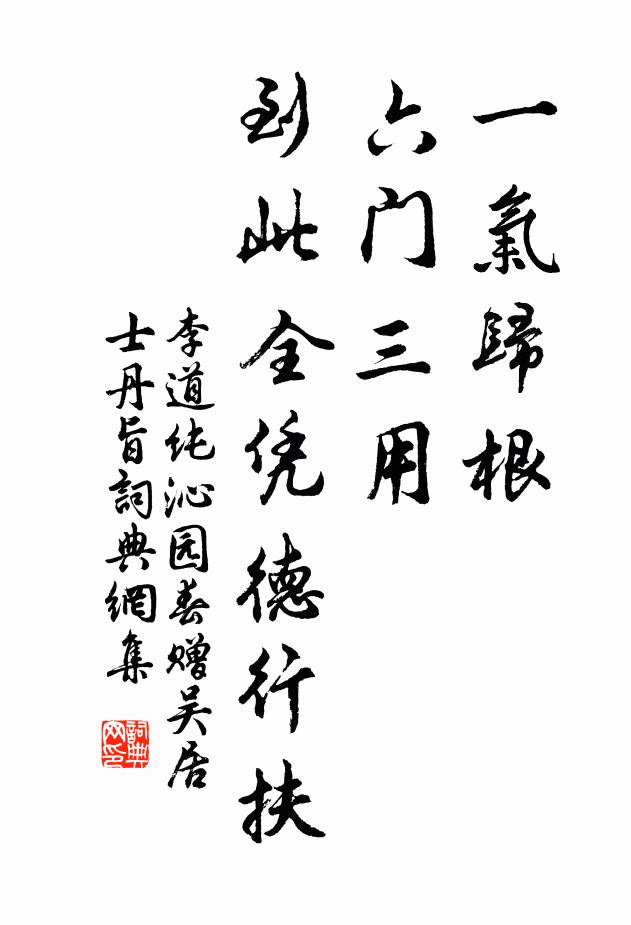 一氣歸根
六門三用
到此全凭德行扶
李道纯沁园春赠吴居
士丹旨詞典網集
詞典網印